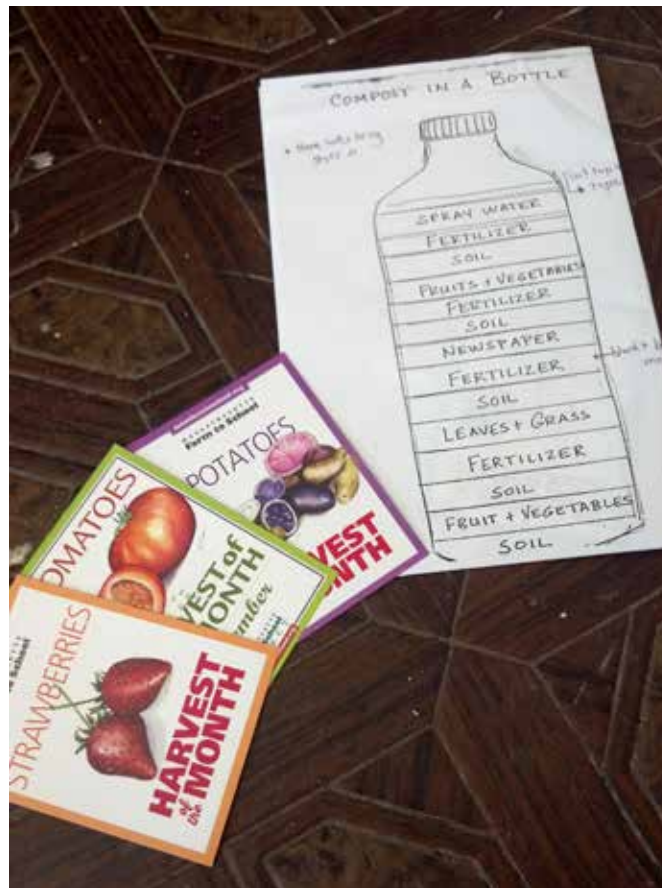 COMPOST IN A BOTTLE
SPRAY WATER
FERTILIZER
SOIL
FRUITS + VEGETABLES
FERTILIZER
SOIL
NEWSPAPER
FERTILIZER
SOIL
LEAVES + GRASS
FERTILIZER
SOIL
FRUIT + VEGETABLES
SOIL
Farm to School
POTATOES
VEST
NTH
OMATOES
VEST of
MONTH
mber
STRAWBERRIES
School
HARVEST
of the MONTH